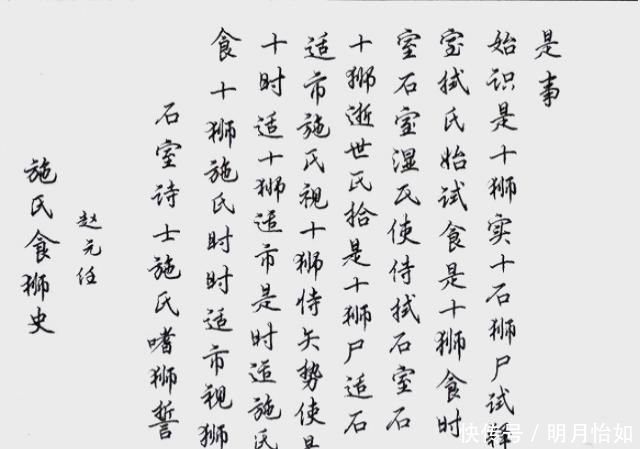 施氏食狮史
赵元任
石室诗士施氏嗜狮誓
食十狮施氏时时适市视狮
十时适十狮适市是时适施氏
适市施氏视十狮恃矢势使是
十狮逝世氏拾是十狮尸适石
室石室湿氏使侍拭石室石
室拭氏始试食是十狮食时
始识是十狮实十石狮尸试释
是事
快传号 / 明月怡如